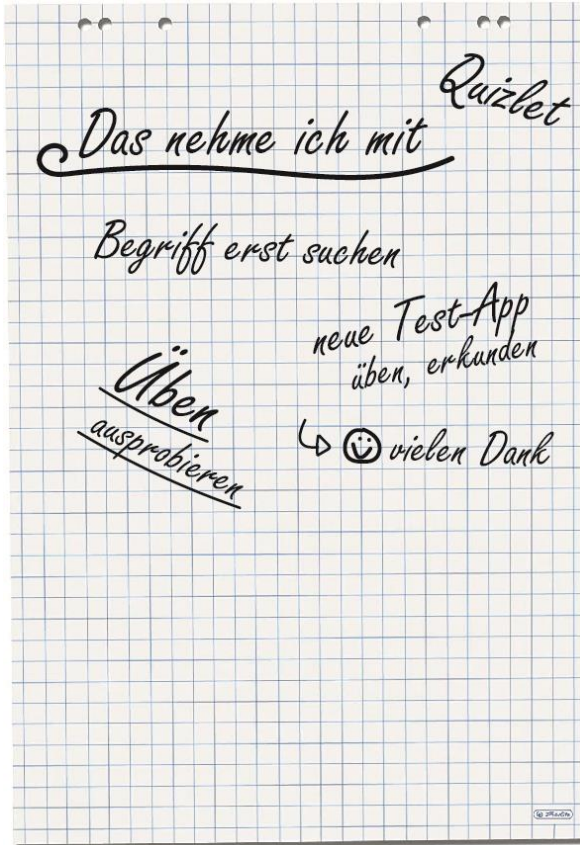 Quizlet
Das nehme ich mit
Begriff erst suchen
neue Test-App
üben, erkunden
Üben
ausprobieren
vielen Dank